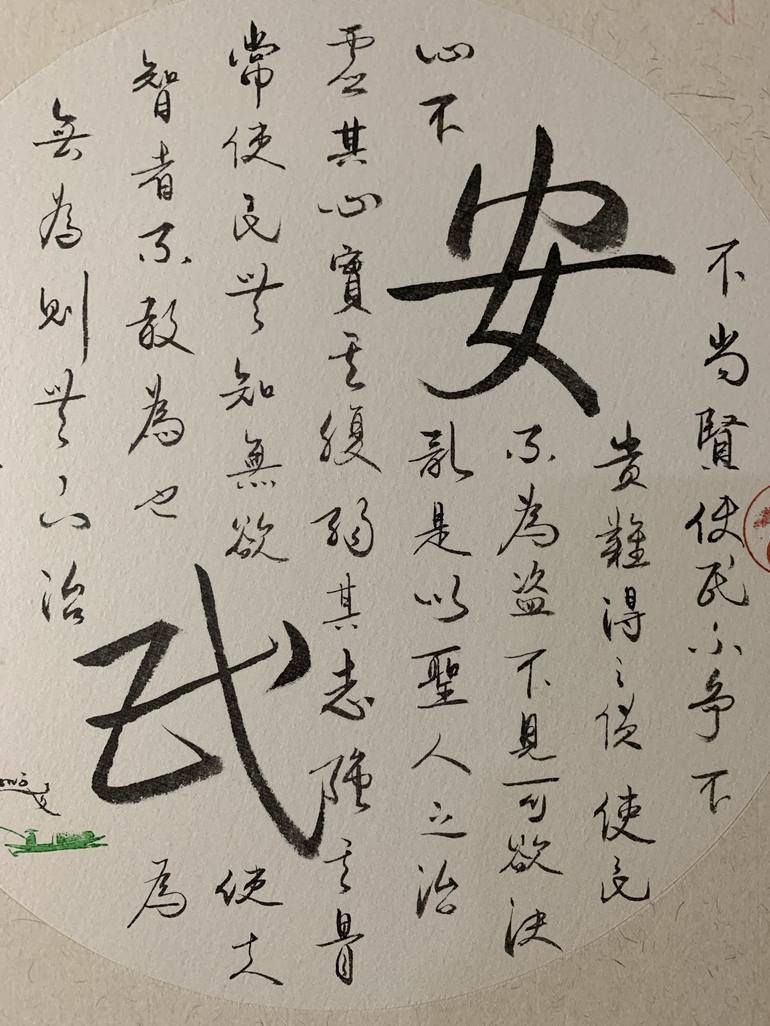 安
民
不尚賢使民不爭不
貴難得之貨使民
不為盜不見可欲使
心不
亂是以聖人之治
虛其心實其腹弱其志強其骨
常使民無知無欲
使夫
智者不敢為也
為
無為則無不治